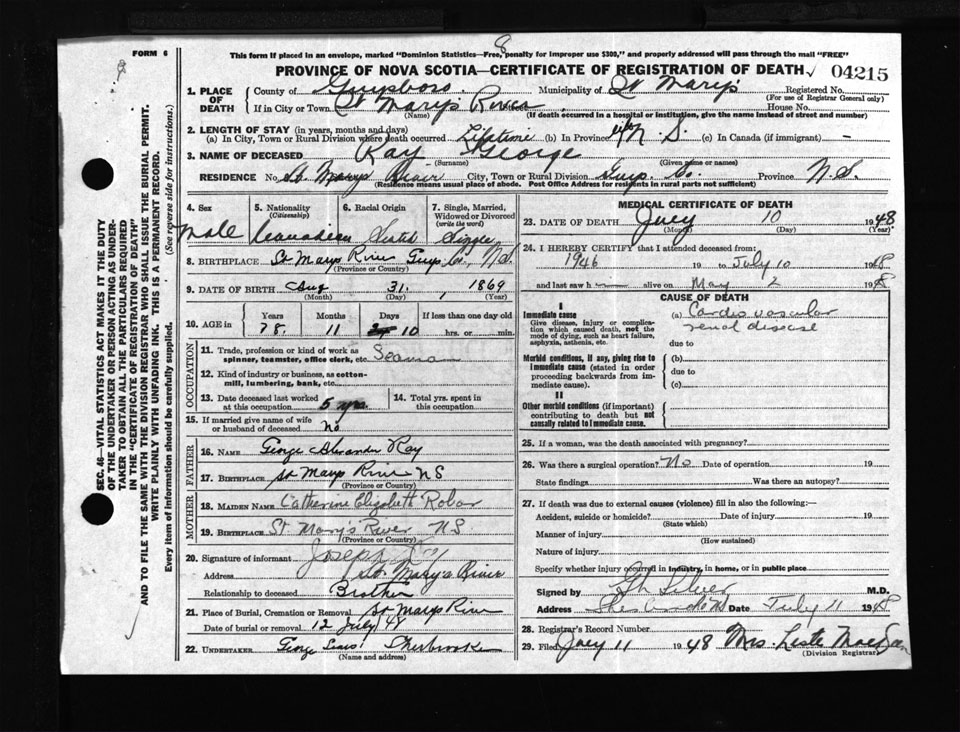 FORM 6
This form if placed in an envelope, marked "Dominion Statistics—Free, penalty for improper use $300," and properly addressed will pass through the mail "FREE"
8
PROVINCE OF NOVA SCOTIA—CERTIFICATE OF REGISTRATION OF DEATH
04215
SEC. 46—VITAL STATISTICS ACT MAKES IT THE DUTY
OF THE UNDERTAKER OR PERSON ACTING AS UNDER-
TAKER TO OBTAIN ALL THE PARTICULARS REQUIRED
IN THE "CERTIFICATE OF REGISTRATION OF DEATH"
AND TO FILE THE SAME WITH THE DIVISION REGISTRAR WHO SHALL ISSUE THE BURIAL PERMIT.
WRITE PLAINLY WITH UNFADING INK. THIS IS A PERMANENT RECORD.
Every item of information should be carefully supplied. (See reverse side for instructions.)
1. PLACE OF DEATH
County of Guysboro Municipality of St Mary's Registered No.
(For use of Registrar General only)
If in City or Town St Mary's River House No.
(Name) (If death occurred in a hospital or institution, give the name instead of street and number)
2. LENGTH OF STAY (in years, months and days)
(a) In City, Town or Rural Division where death occurred Lifetime (b) In Province N. S. (c) In Canada (if immigrant) —
3. NAME OF DECEASED Kay George
(Surname) (Given name or names)
RESIDENCE No. St Marys River City, Town or Rural Division Guys. Co. Province N.S.
(Residence means usual place of abode. Post Office Address for residents in rural parts not sufficient)
4. Sex Male
5. Nationality (Citizenship) Canadian
6. Racial Origin
7. Single, Married, Widowed or Divorced (write the word) Single
8. BIRTHPLACE St Marys River Guys Co, N.S.
(Province or Country)
9. DATE OF BIRTH Aug 31, 1869
(Month) (Day) (Year)
10. AGE in Years Months Days If less than one day old
78 11 10 hrs. or min.
OCCUPATION
11. Trade, profession or kind of work as spinner, teamster, office clerk, etc. Seaman
12. Kind of industry or business, as cotton-mill, lumbering, bank, etc.
13. Date deceased last worked at this occupation 5 yrs.
14. Total yrs. spent in this occupation
15. If married give name of wife or husband of deceased No
FATHER
16. NAME George Alexander Kay
17. BIRTHPLACE St Marys River NS
(Province or Country)
MOTHER
18. MAIDEN NAME Catherine Elizabeth Robar
19. BIRTHPLACE St Mary's River NS
(Province or Country)
20. Signature of informant Joseph
Address St Mary's River
Relationship to deceased Brother
21. Place of Burial, Cremation or Removal St Marys River
Date of burial or removal 12 July 48
22. UNDERTAKER George Sherbrooke
(Name and address)
MEDICAL CERTIFICATE OF DEATH
23. DATE OF DEATH July 10 1948
(Month) (Day) (Year)
24. I HEREBY CERTIFY that I attended deceased from:
1946 19 to July 10 1948
and last saw h alive on May 2 1948
CAUSE OF DEATH
I
Immediate cause
Give disease, injury or complication which caused death, not the mode of dying, such as heart failure, asphyxia, asthenia, etc.
(a) Cardio vascular
renal disease
due to
Morbid conditions, if any, giving rise to Immediate cause (stated in order proceeding backwards from immediate cause).
(b)
due to
(c)
II
Other morbid conditions (if important) contributing to death but not causally related to immediate cause.
25. If a woman, was the death associated with pregnancy?
26. Was there a surgical operation? No Date of operation 19
State findings Was there an autopsy?
27. If death was due to external causes (violence) fill in also the following:—
Accident, suicide or homicide? Date of injury 19
(State which)
Manner of injury
(How sustained)
Nature of injury
Specify whether injury occurred in industry, in home, or in public place
Signed by M.D.
Address Date July 11 1948
28. Registrar's Record Number
29. Filed July 11 1948 Mrs.
(Division Registrar)